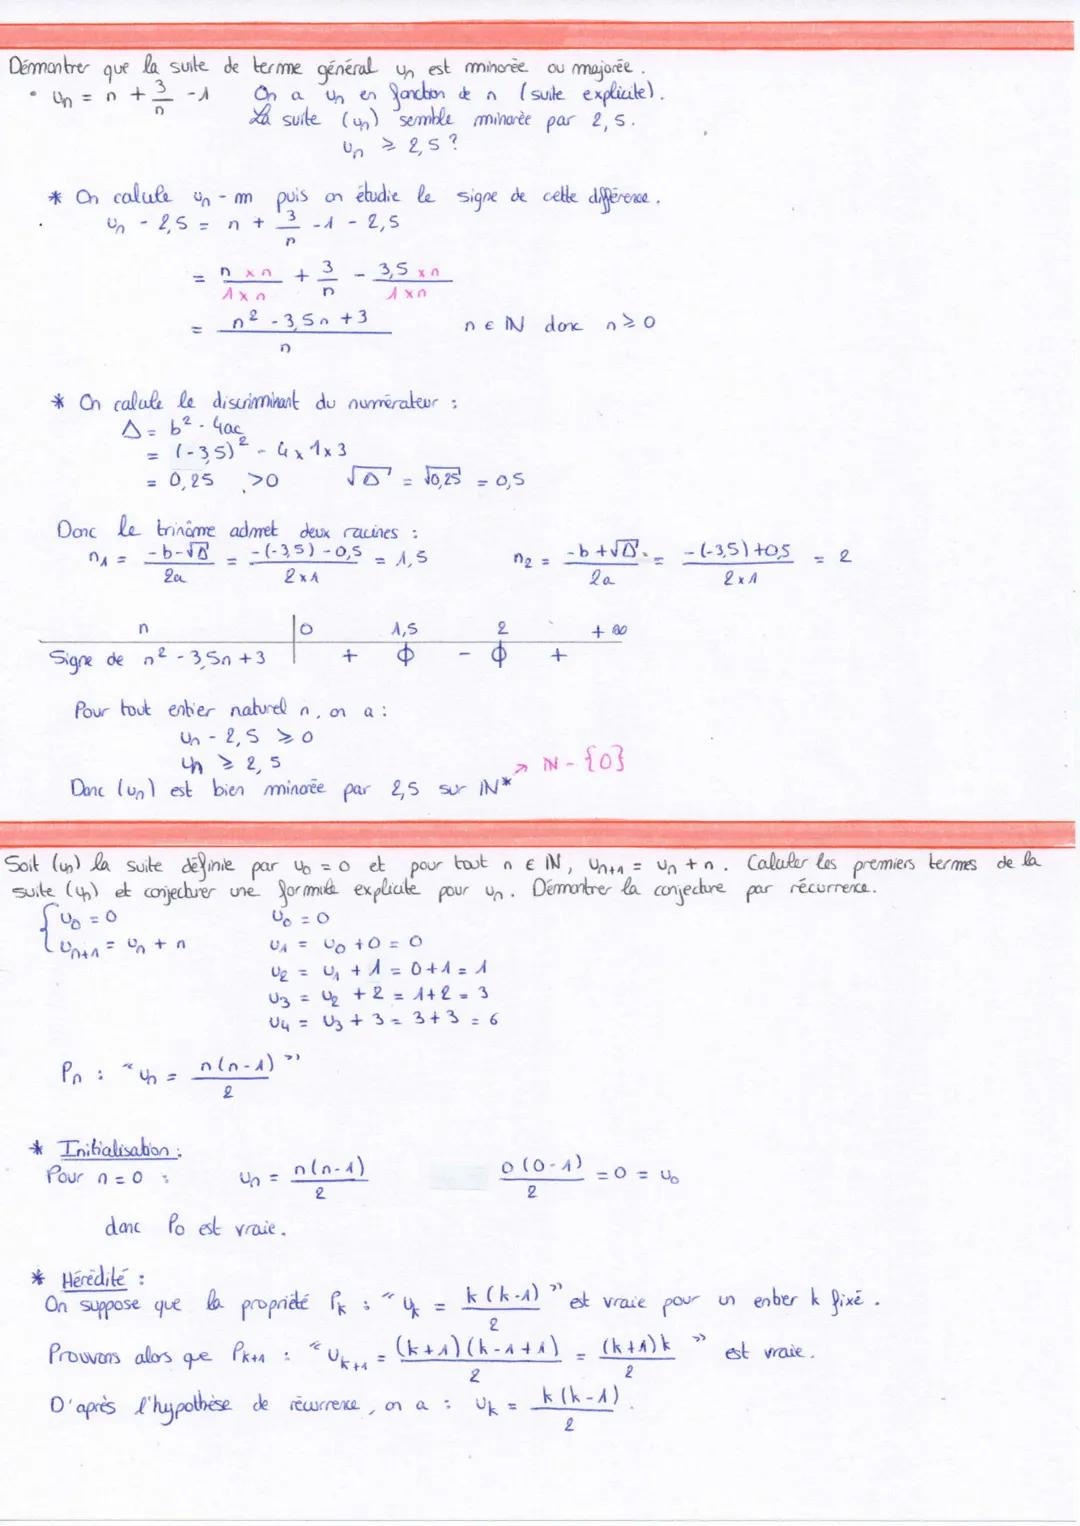 Démontrer que la suite de terme général un est minorée ou majorée.
• un = n + 3/n - 1 On a un en fonction de n (suite explicite).
La suite (un) semble minorée par 2,5.
un ≥ 2,5 ?
* On calcule un - m puis on étudie le signe de cette différence.
un - 2,5 = n + 3/n - 1 - 2,5
= n × n / 1 × n + 3/n - 3,5 × n / 1 × n
= n² - 3,5n + 3 / n n ∈ ℕ donc n ≥ 0
* On calcule le discriminant du numérateur :
Δ = b² - 4ac
= (-3,5)² - 4 × 1 × 3
= 0,25 > 0 √Δ = √0,25 = 0,5
Donc le trinôme admet deux racines :
n1 = -b-√Δ / 2a = -(-3,5) - 0,5 / 2 × 1 = 1,5 n2 = -b+√Δ / 2a = -(-3,5)+0,5 / 2 × 1 = 2
n 0 1,5 2 +∞
Signe de n² - 3,5n + 3 + 0 - 0 +
Pour tout entier naturel n, on a :
un - 2,5 ≥ 0
un ≥ 2,5
→ ℕ - {0}
Donc (un) est bien minorée par 2,5 sur ℕ*
Soit (un) la suite définie par u0 = 0 et pour tout n ∈ ℕ, un+1 = un + n. Calculer les premiers termes de la
suite (un) et conjecturer une formule explicite pour un. Démontrer la conjecture par récurrence.
{ u0 = 0 u0 = 0
un+1 = un + n u1 = u0 + 0 = 0
u2 = u1 + 1 = 0+1 = 1
u3 = u2 + 2 = 1+2 = 3
u4 = u3 + 3 = 3+3 = 6
Pn : « un = n(n-1) / 2 »
* Initialisation :
Pour n = 0 : un = n(n-1) / 2 0(0-1) / 2 = 0 = u0
donc P0 est vraie.
* Hérédité :
On suppose que la propriété Pk : « uk = k(k-1) / 2 » est vraie pour un entier k fixé.
Prouvons alors que Pk+1 : « uk+1 = (k+1)(k-1+1) / 2 = (k+1)k / 2 » est vraie.
D'après l'hypothèse de récurrence, on a : uk = k(k-1) / 2.